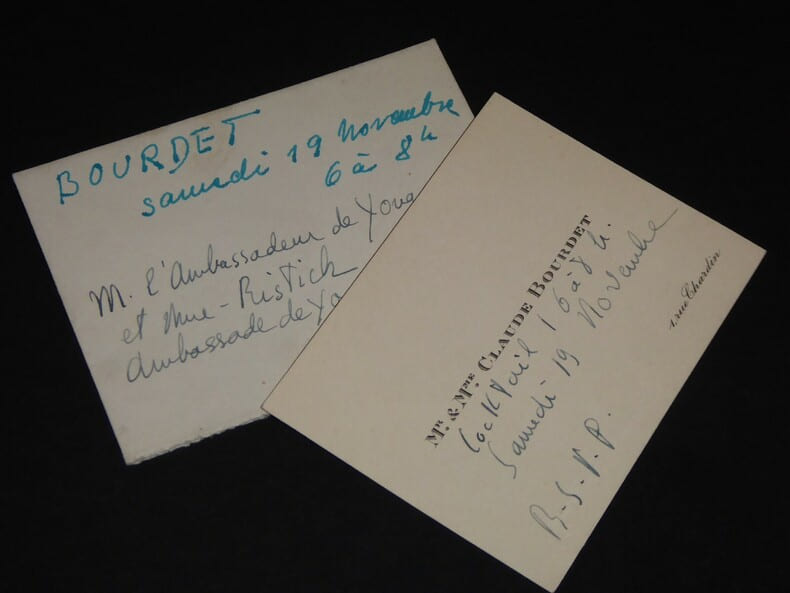 BOURDET
samedi 19 Novembre
6 à 8h
M. l'Ambassadeur de Youg
et Mme - Ristich
Ambassade de Yo
MR. & MME. CLAUDE BOURDET
Cocktail 6 à 8 h.
Samedi 19 Novembre
R.S.V.P.
1. rue Chardin